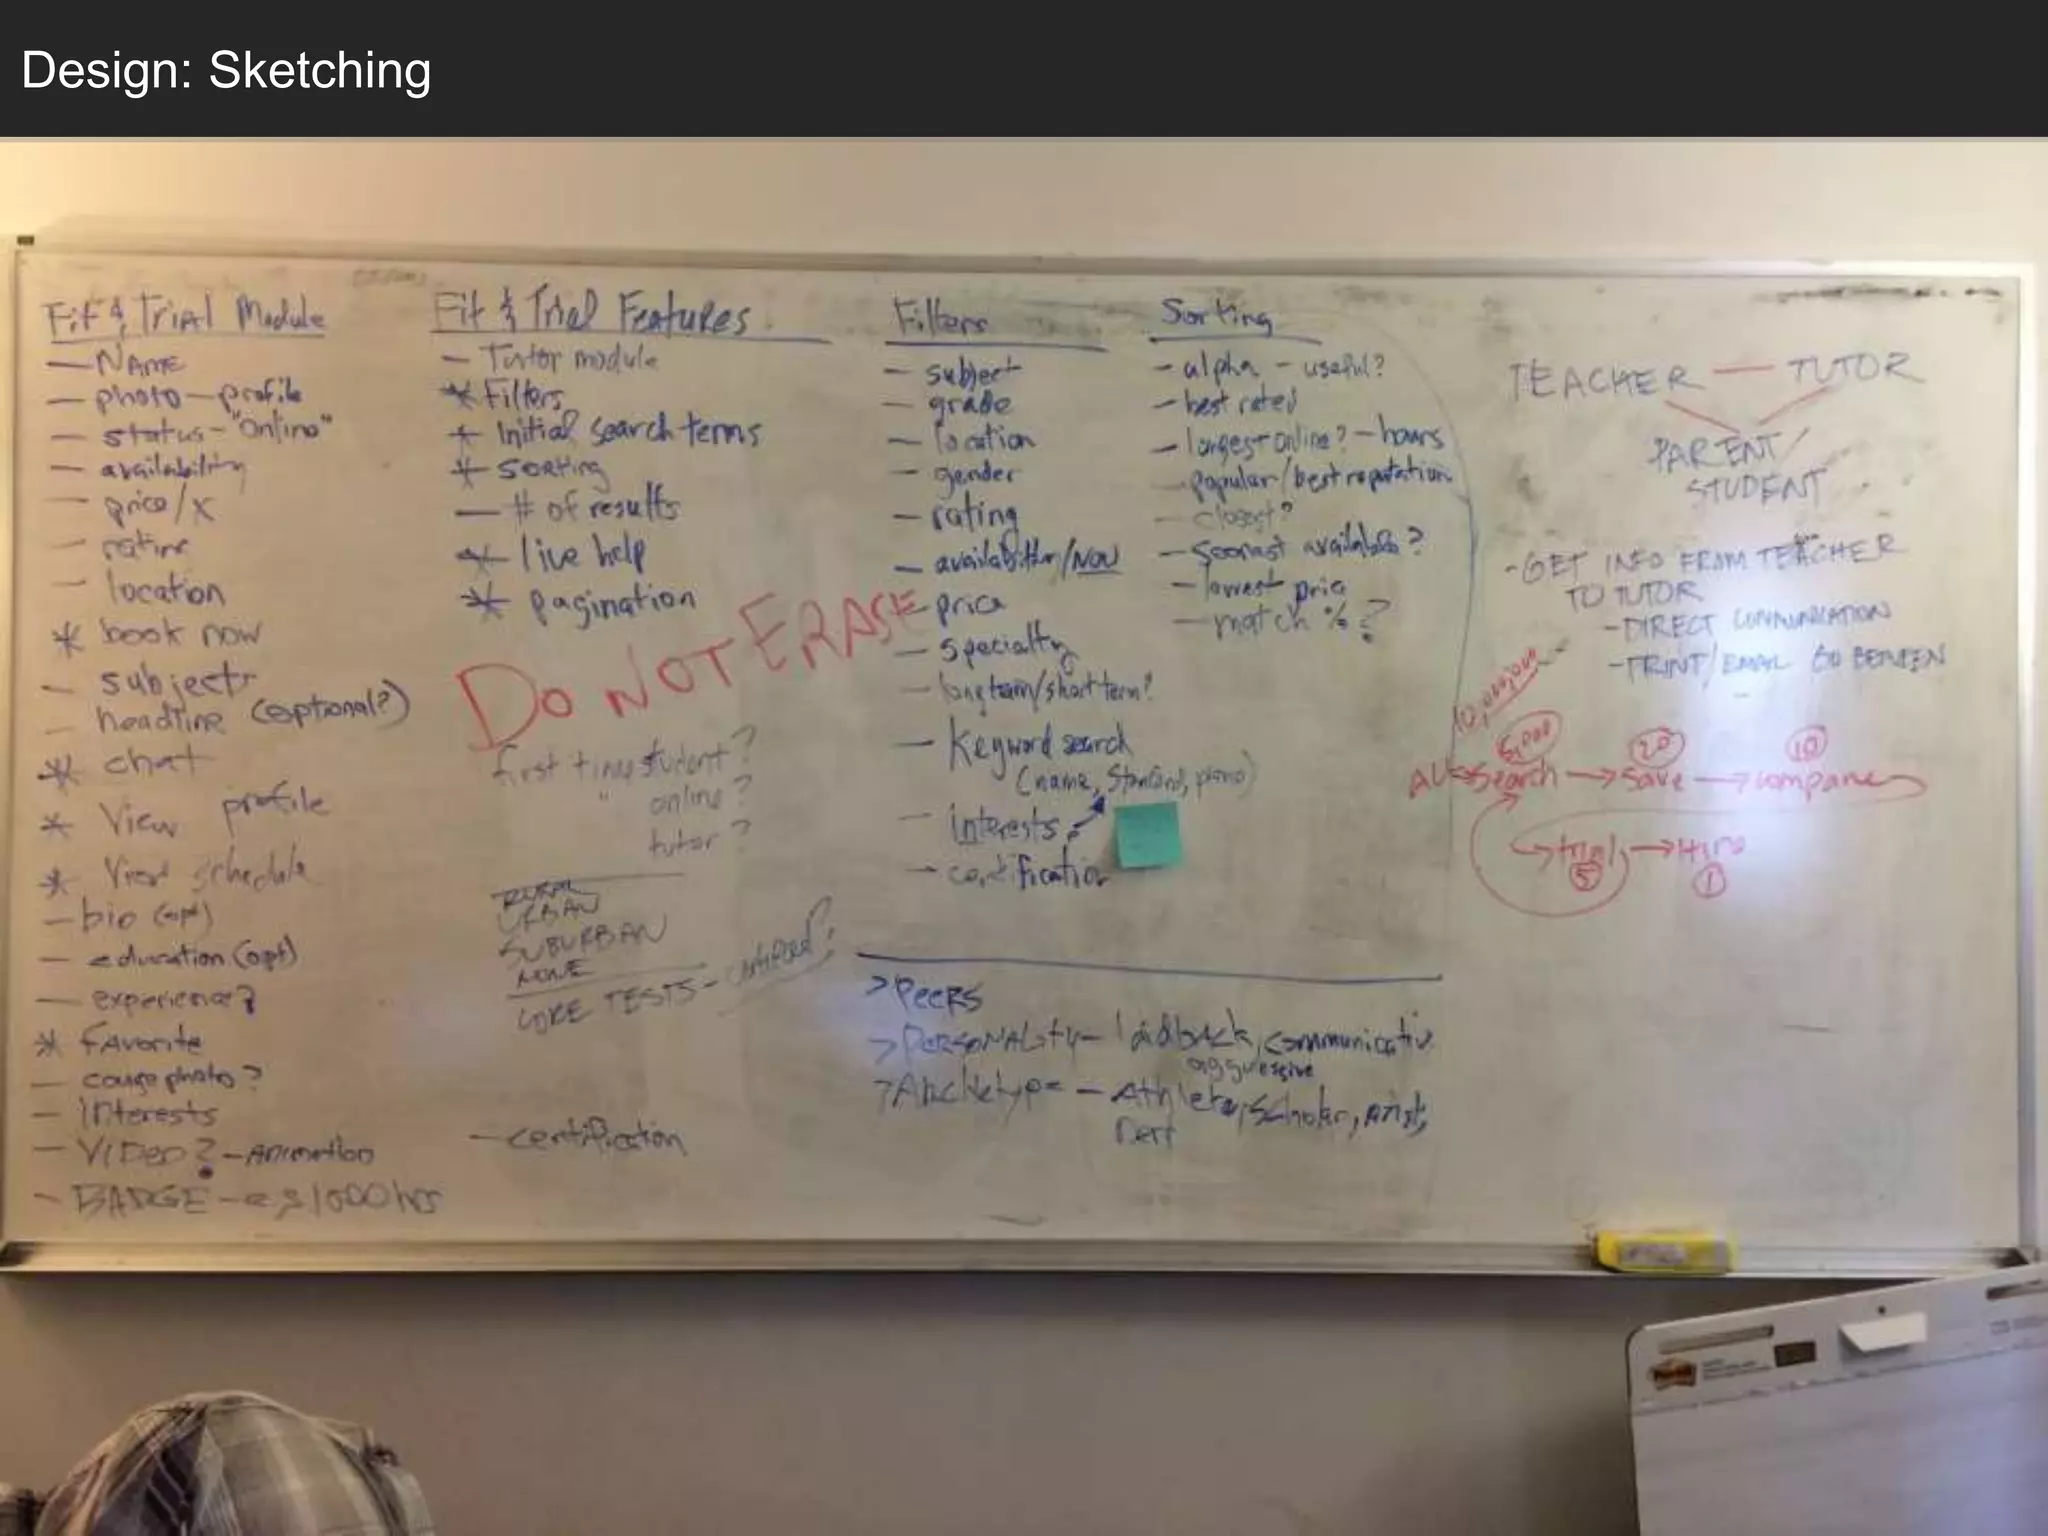 Design: Sketching
Fit & Trial Module
— NAME
— photo — profile
— status - "Online"
— availability
— price/x
— rating
— location
* book now
— subjects
— headline (optional?)
* chat
* View profile
* View schedule
— bio (opt)
— education (opt)
— experience?
* FAvorite
— photo?
— Interests
— VIDEO? — Animation
— BADGE — e.g 1000 hrs
Fit & Trial Features
— Tutor module
* Filters
* Initial search terms
* Sorting
— # of results
* live help
* pagination
DO NOT ERASE
first time student?
" online?
tutor?
RURAL
URBAN
SUBURBAN
NONE
CORE TESTS - certified?
— certification
Filters
— subject
— grade
— location
— gender
— rating
— /NOW
— price
— specialty
— long term/short term?
— Keyword search
(name, Stanford, piano)
— interests
— certification
Sorting
— alpha — useful?
— best rated
— longest online? — hours
— popular/best reputation
— closest?
— soonest available?
— lowest price
— match %?
> PeeRS
> PERSONALITY — laidback, communicative
aggressive
> Archetype — Athlete, Scholar, artist,
nerd
TEACHER — TUTOR
PARENT/
STUDENT
- GET INFO FROM TEACHER
TO TUTOR
- DIRECT COMMUNICATION
- PRINT/EMAIL
10,000,000
5,000 20 10
All → Search → save → compare
→ trial → Hire
5 1